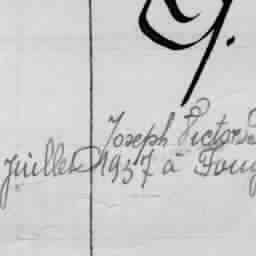 G.
Joseph Victor
juillet 1937 à Foug